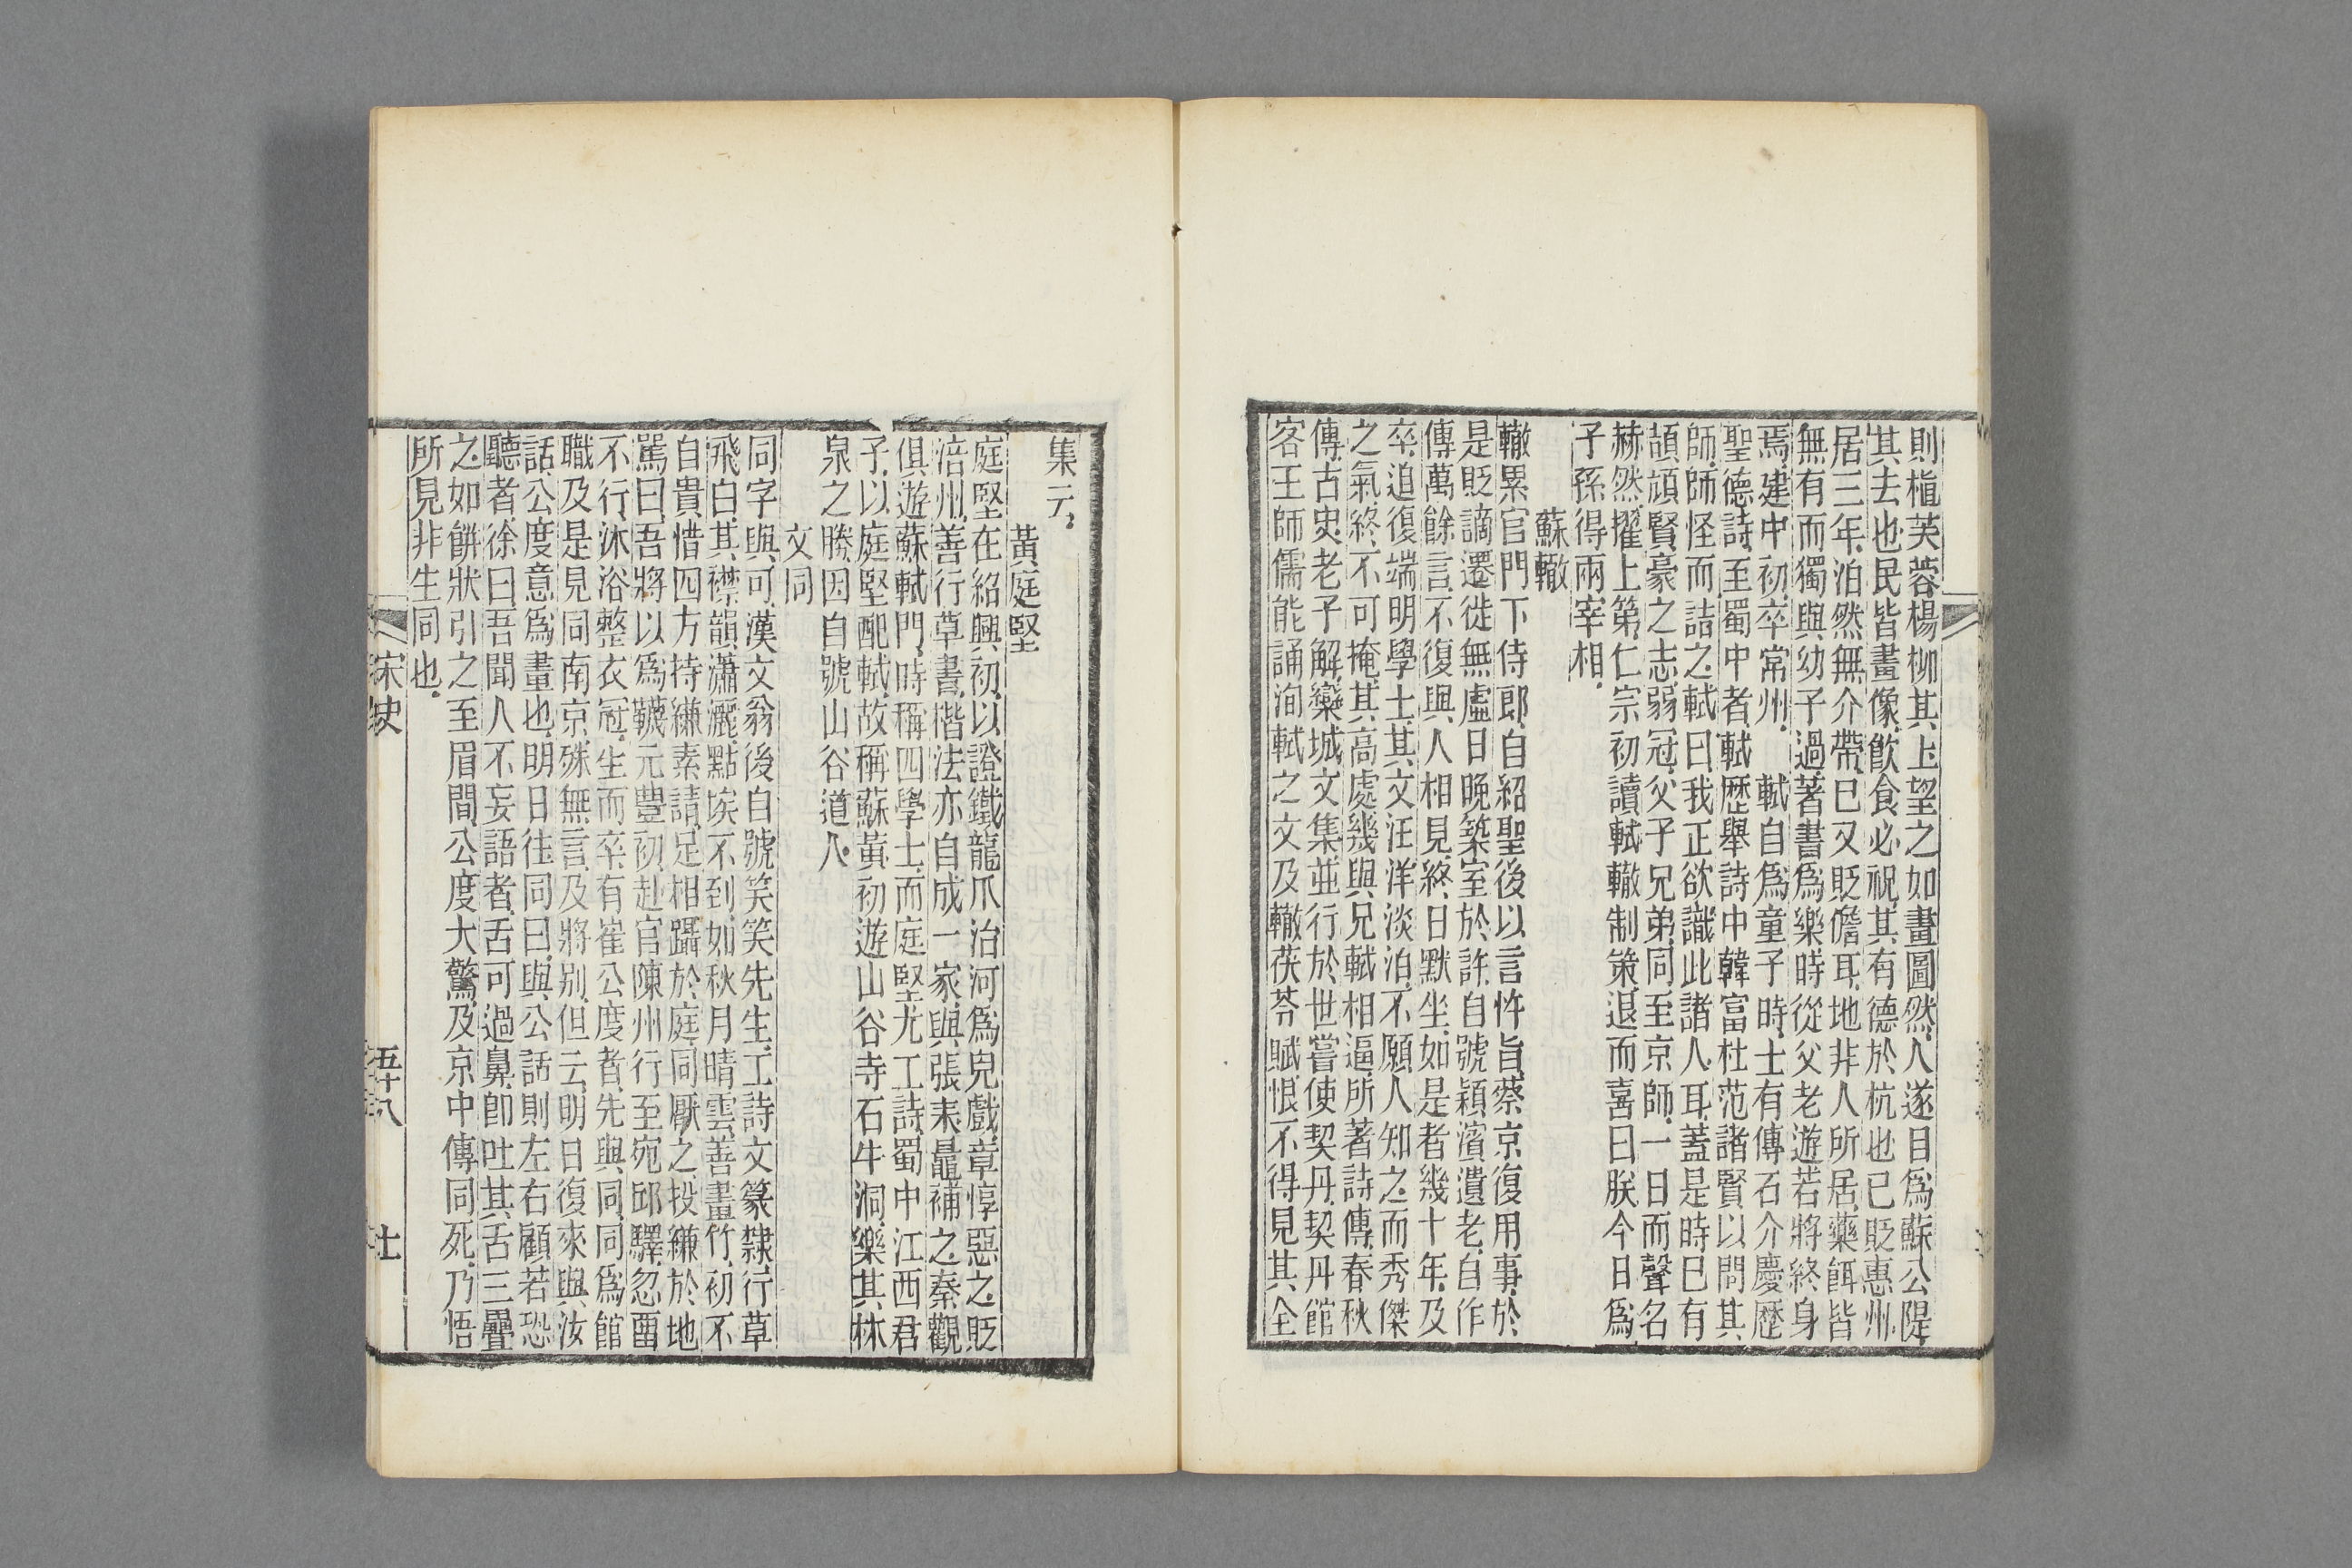 則植芙蓉楊柳其上望之如畫圖然人遂目爲蘇公隄
其去也民皆畫像飲食必祝其有德於杭也已貶惠州
居三年泊然無介帶巳又貶儋耳地非人所居藥餌皆
無有而獨與幼子過著書爲樂時從父老遊若將終身
焉建中初卒常州　軾自爲童子時士有傳石介慶歷
聖德詩至蜀中者軾歷舉詩中韓富杜范諸賢以問其
師師怪而詰之軾曰我正欲識此諸人耳蓋是時巳有
頡頏賢豪之志弱冠父子兄弟同至京師一日而聲名
赫然擢上第仁宗初讀軾轍制策退而喜曰朕今日爲
子孫得兩宰相
蘇轍
轍累官門下侍郎自紹聖後以言忤旨蔡京復用事於
是貶謫遷徙無虛日晚築室於許自號潁濱遺老自作
傳萬餘言不復與人相見終日默坐如是者幾十年及
卒追復端明學士其文汪洋淡泊不願人知之而秀傑
之氣終不可掩其高處幾與兄軾相逼所著詩傳春秋
傳古史老子解欒城文集並行於世嘗使契丹契丹館
客王師儒能誦洵軾之文及轍茯苓賦恨不得見其全
集云
黃庭堅
庭堅在紹興初以證鐵龍爪治河爲兒戲章惇惡之貶
涪州善行草書楷法亦自成一家與張耒鼂補之秦觀
俱遊蘇軾門時稱四學士而庭堅尤工詩蜀中江西君
子以庭堅配軾故稱蘇黃初遊山谷寺石牛洞樂其林
泉之勝因自號山谷道人
文同
同字與可漢文翁後自號笑笑先生工詩文篆隸行草
飛白其襟韻瀟灑點埃不到如秋月晴雲善畫竹初不
自貴惜四方持縑素請足相躡於庭同厭之投縑於地
罵曰吾將以爲韈元豐初赴官陳州行至宛邱驛忽畱
不行沐浴整衣冠生而卒有崔公度者先與同同爲館
職及是見同南京殊無言及將别但云明日復來與汝
話公度意爲畫也明日往同曰與公話則左右顧若恐
聽者徐曰吾聞人不妄語者舌可過鼻卽吐其舌三疊
之如餅狀引之至眉間公度大驚及京中傳同死乃悟
所見非生同也
宋史
五十八
七